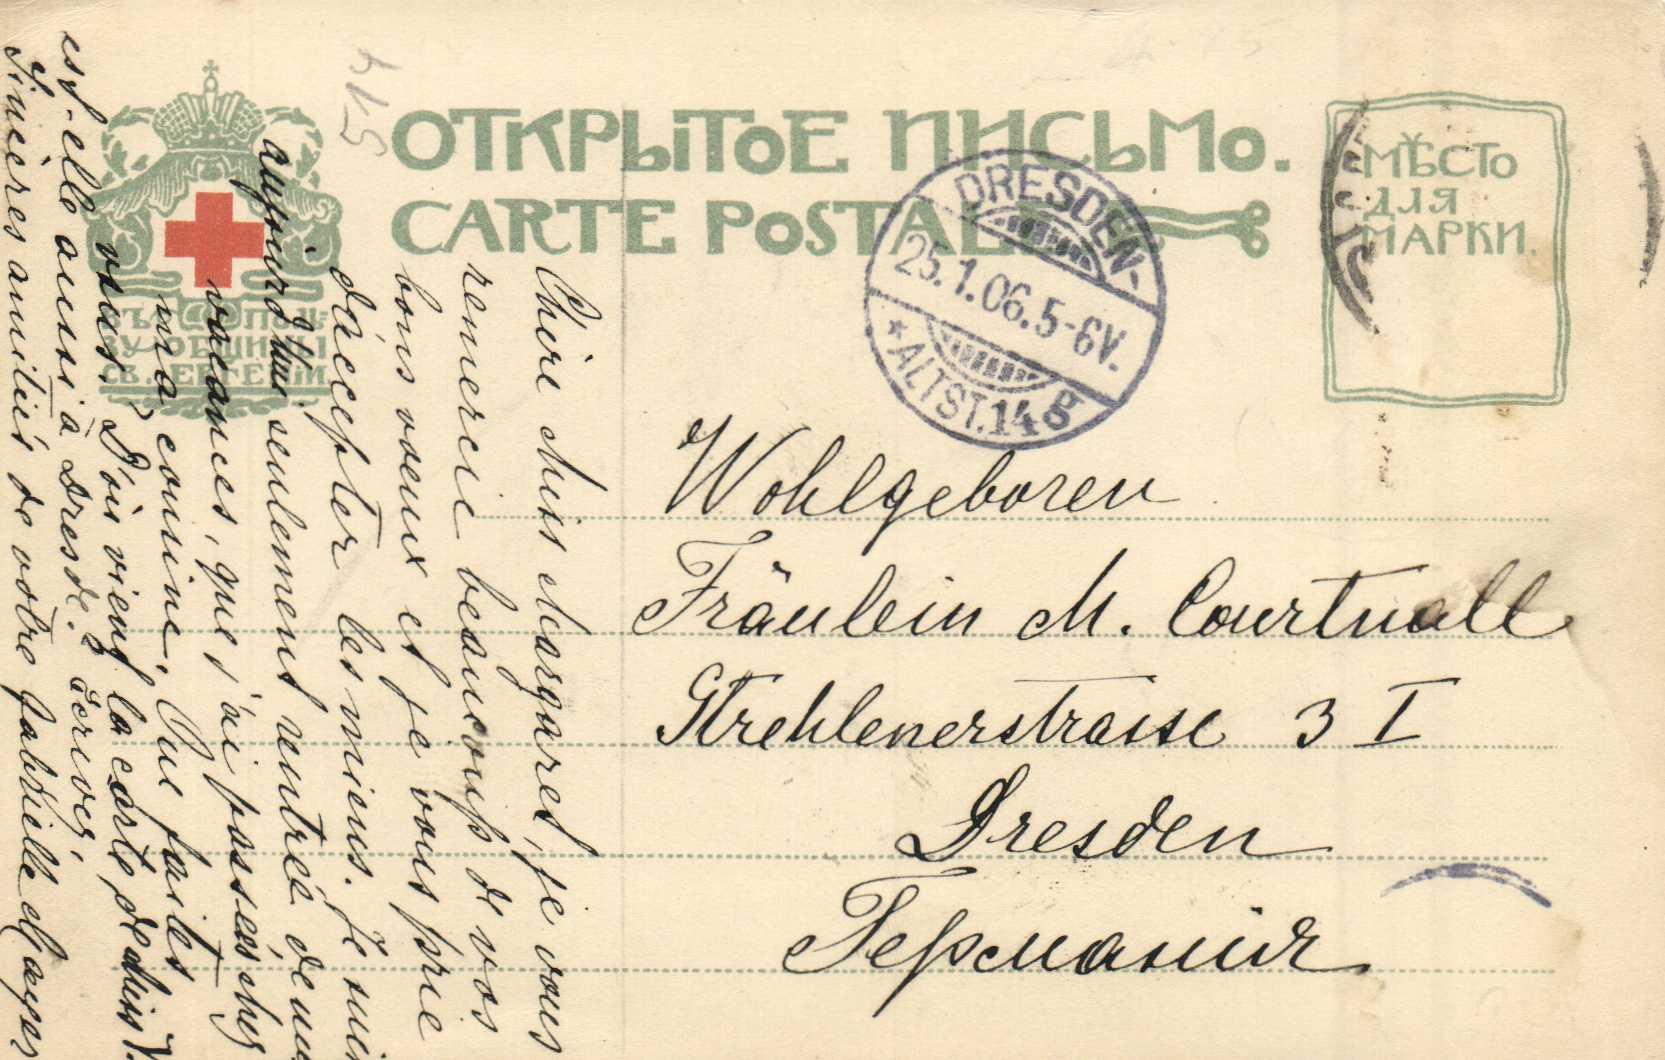 514
ОТКРЫТОЕ ПИСЬМО.
CARTE POSTALE
МѢСТО
ДЛЯ
МАРКИ
ВЪ ПОЛЬ-
ЗУ ОБЩИНЫ
СВ. ЕВГЕНІИ
DRESDEN-
25.1.06.5-6V.
*ALTST.14 g
Wohlgeboren
Fräulein M. Courtnall
Strehlenerstrasse 3 I
Dresden
Германія
Chère Miss Margaret, je vous
remercie beaucoup de vos
bons voeux et je vous prie
d'accepter les miens. Je suis
aujourd'hui seulement rentrée de mes
vacances, que j'ai passées chez
ma cousine. Que faites
vous? D'où vient la carte, de
est-elle aussi à Dresde? Ecrivez,
Sincères amitiés de votre Gabrielle